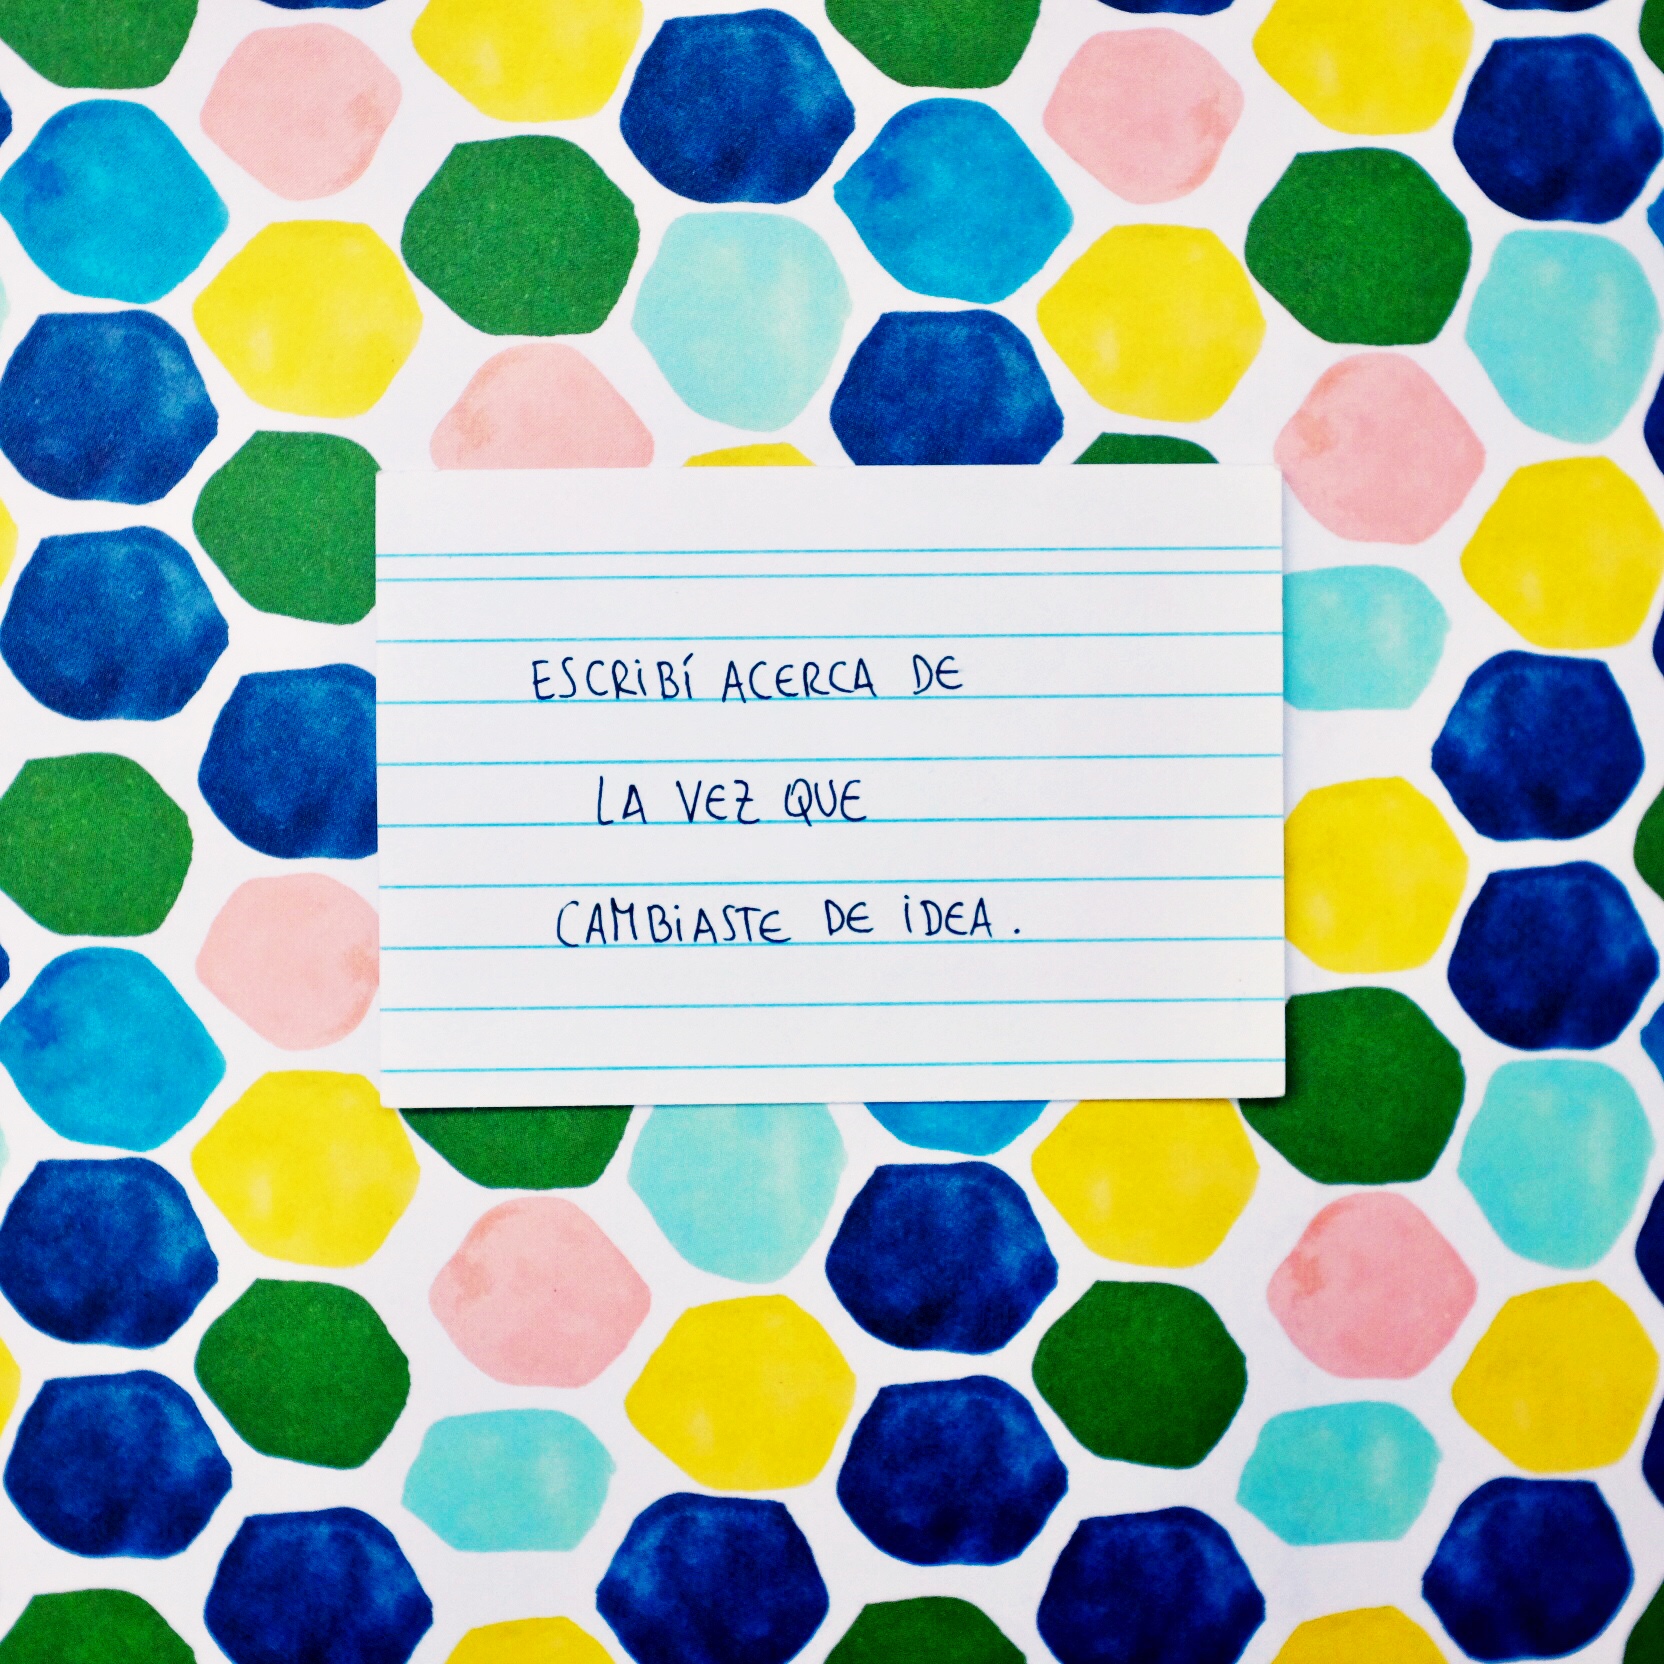 ESCRiBÍ ACERCA DE
LA VEZ QUE
CAMBiASTE DE iDEA.